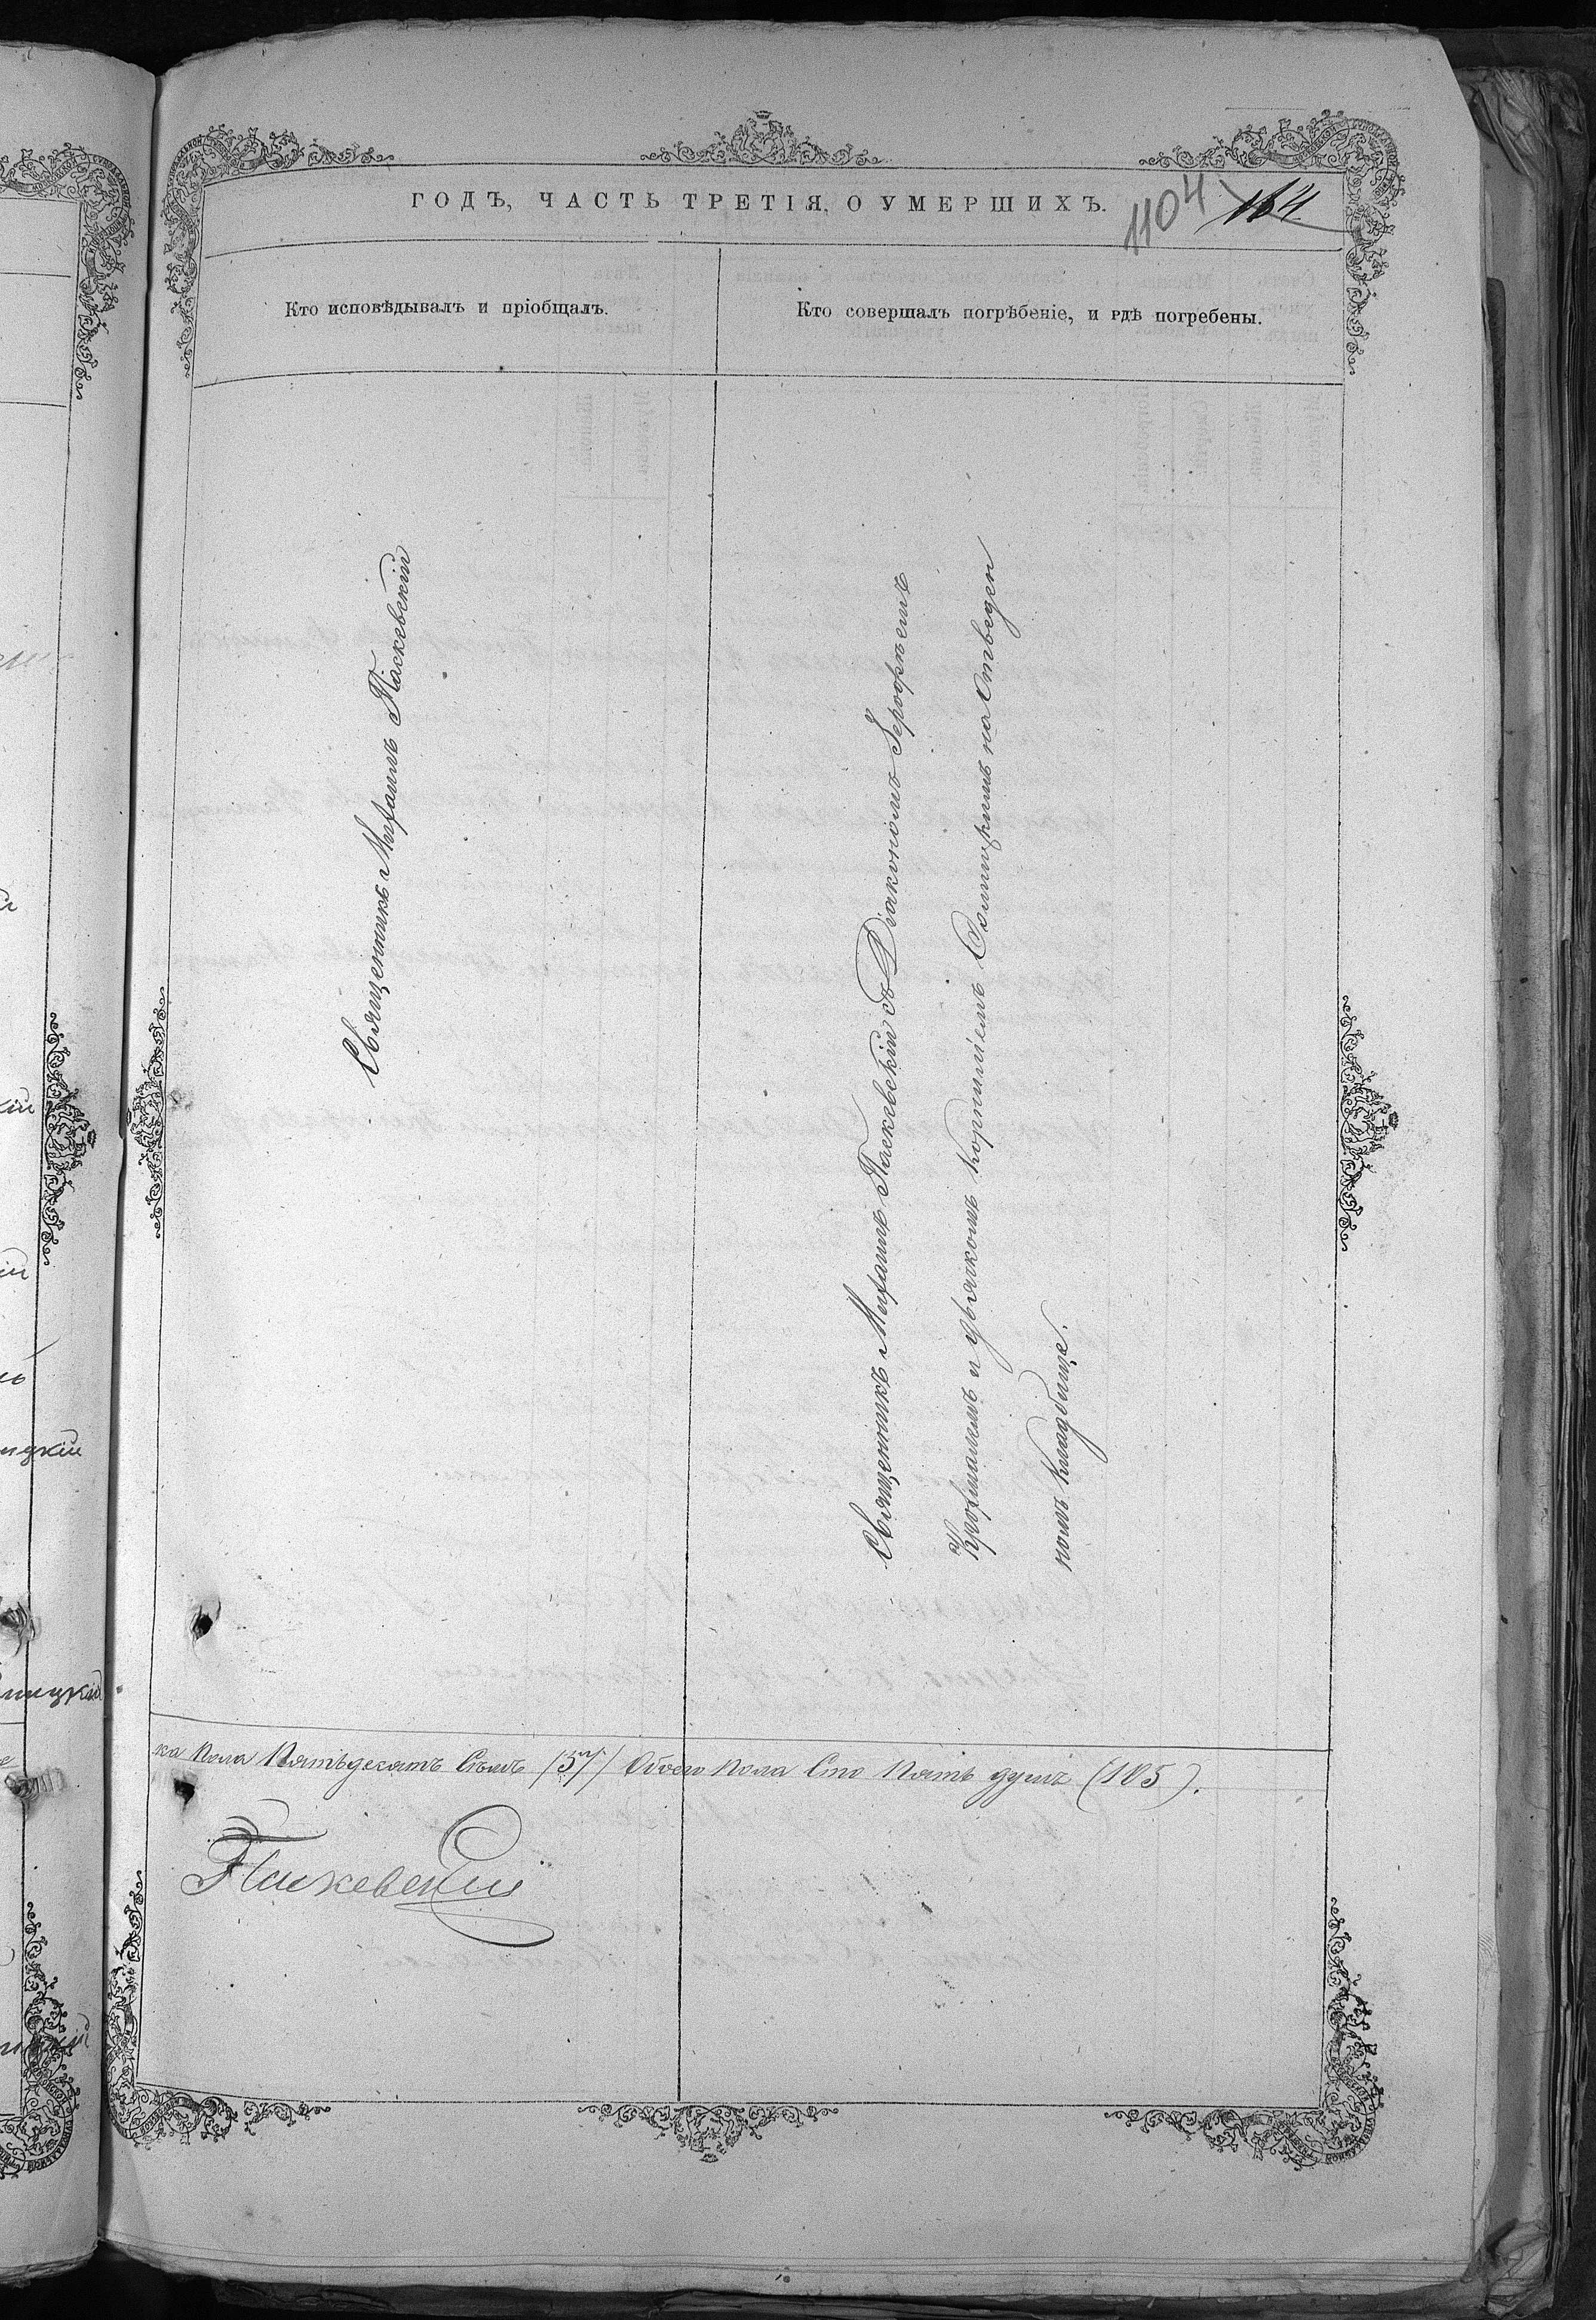 ГОДЪ, ЧАСТЬ ТРЕТІЯ, О УМЕРШИХЪ.
1104
164
Кто исповѣдывалъ и пріобщалъ.
Кто совершалъ погрѣбеніе, и гдѣ погребены.
Священникъ Михаилъ Паскевскій
Священникъ Михаилъ Паскевскій съ Діакономъ
и дьячкомъ Корниліемъ на Отведен
номъ кладбище.
ка пола Пятьдесятъ Семь (57) Обоего пола Сто Пять душъ (105).
Паскевскій